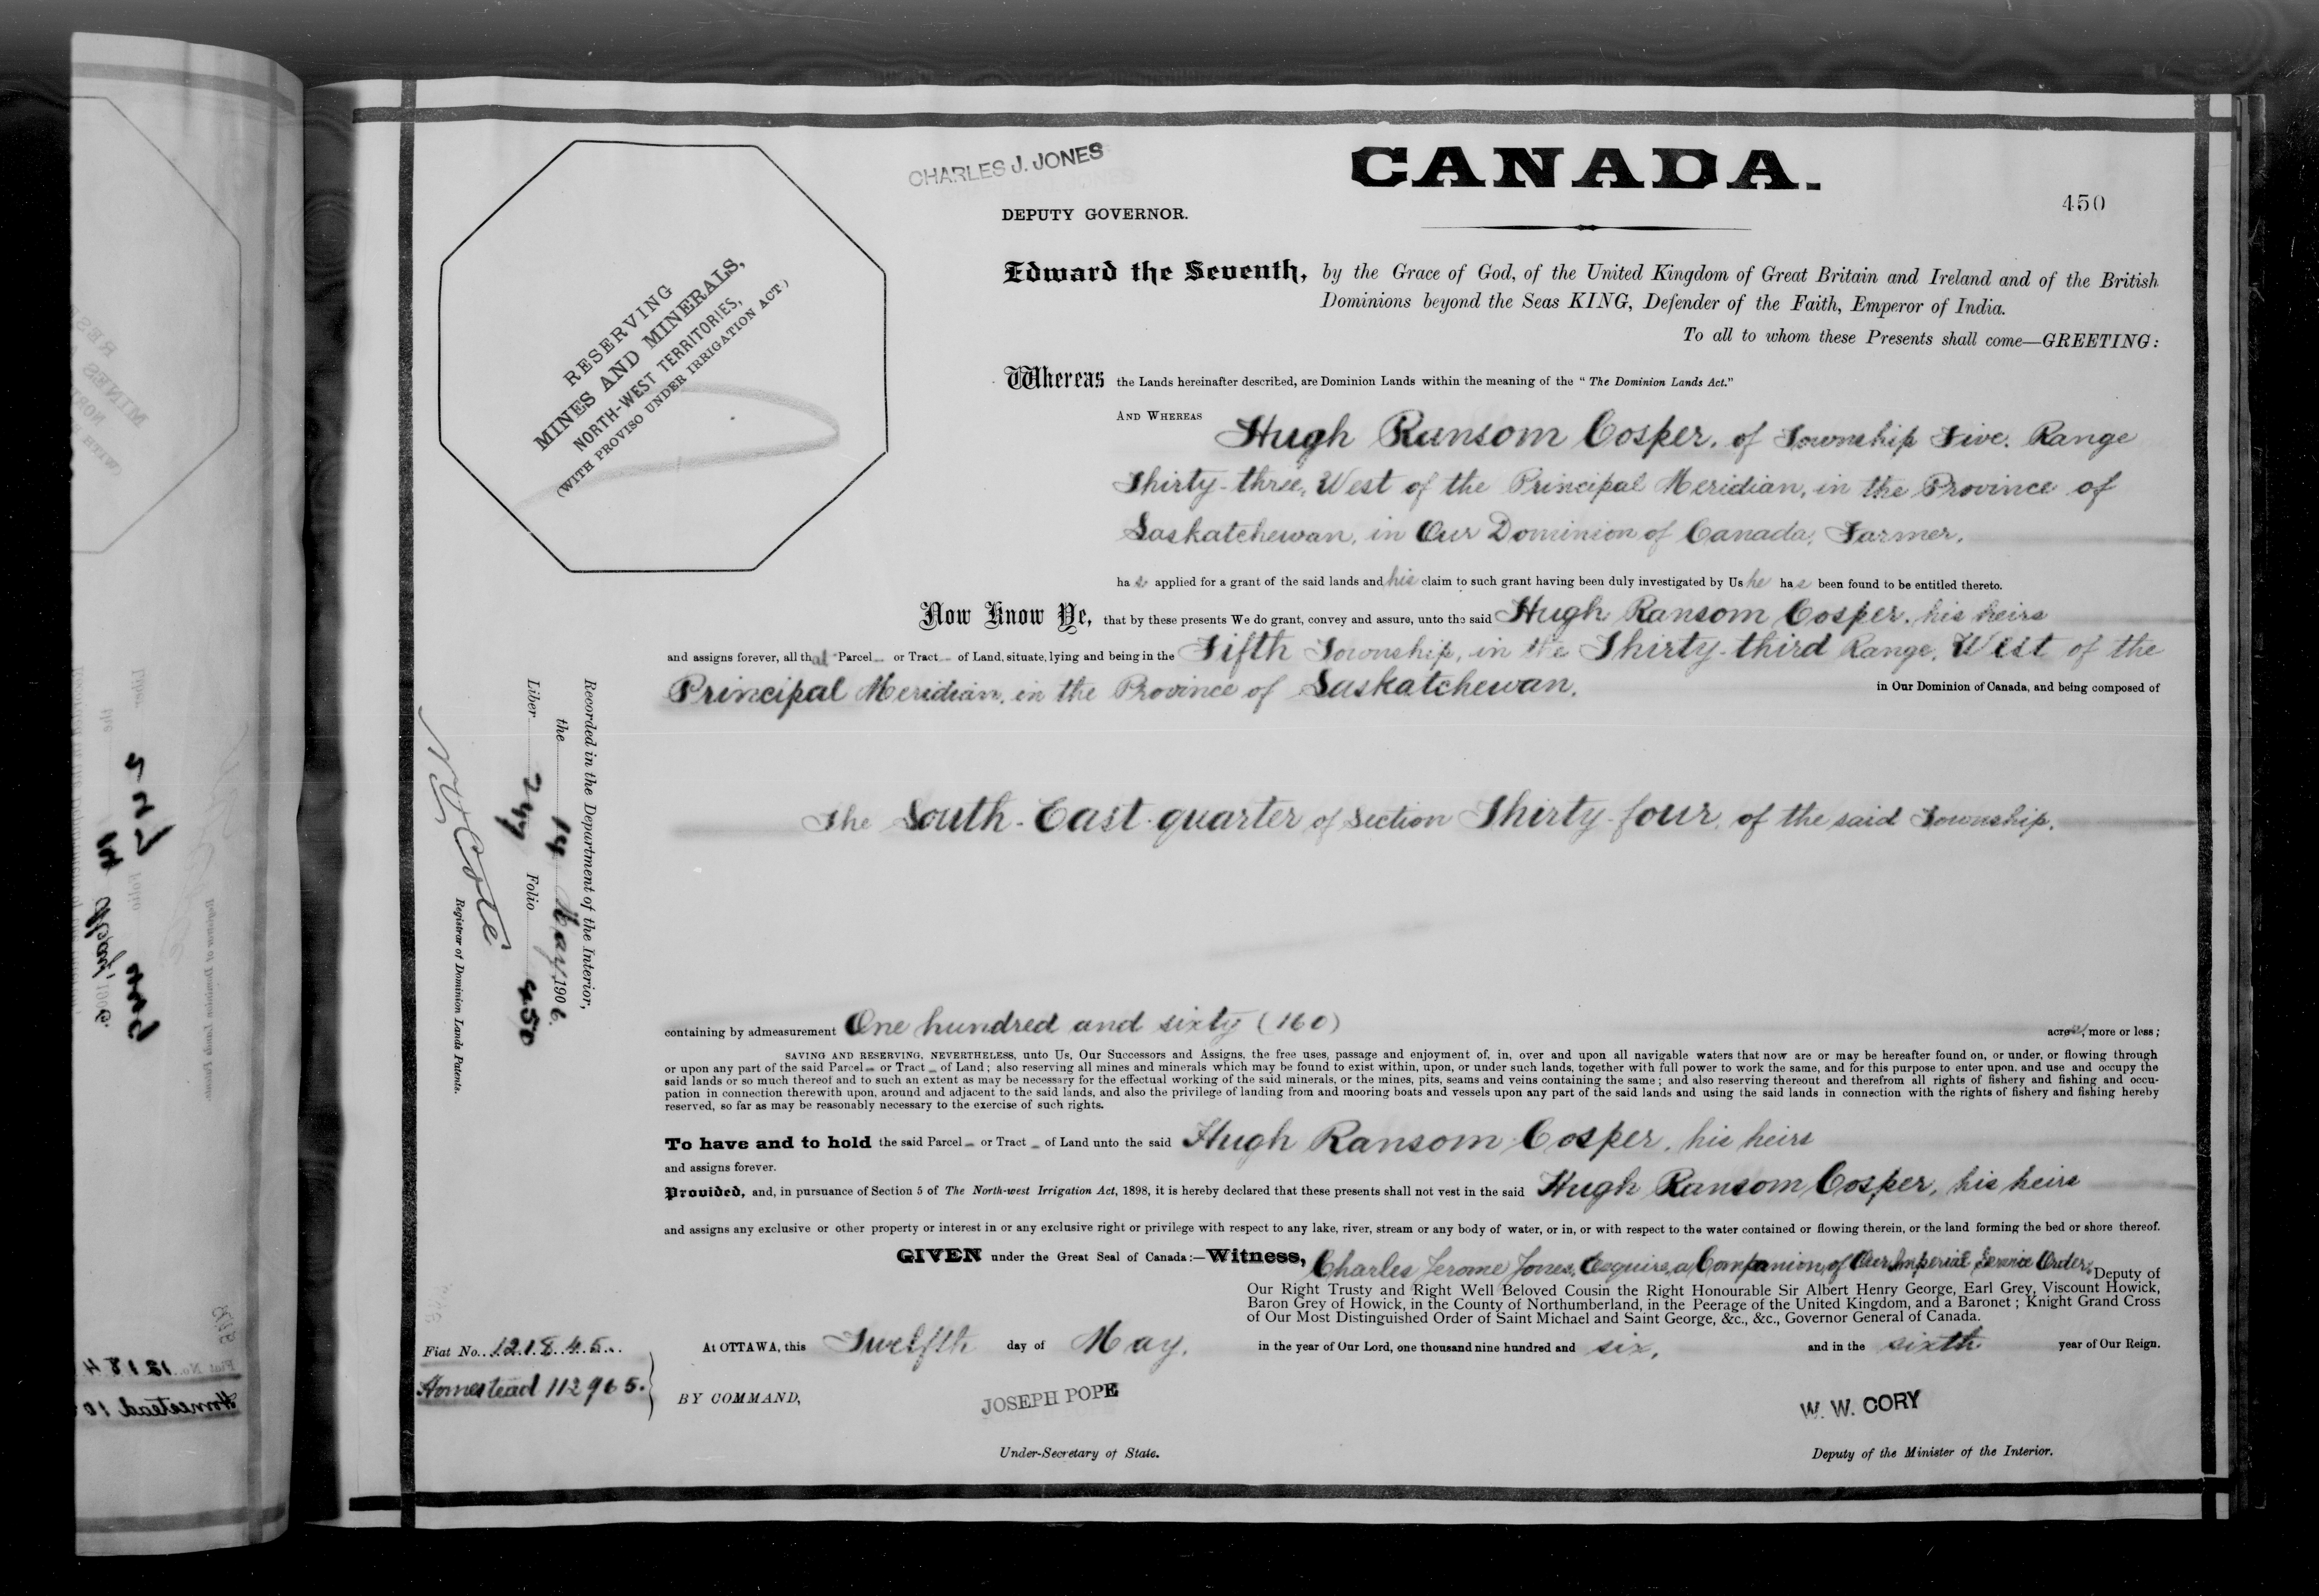 CHARLES J. JONES
CANADA.
DEPUTY GOVERNOR.
450
RESERVING
MINES AND MINERALS,
NORTH-WEST TERRITORIES,
(WITH PROVISO UNDER IRRIGATION ACT.)
Edward the Seventh, by the Grace of God, of the United Kingdom of Great Britain and Ireland and of the British
Dominions beyond the Seas KING, Defender of the Faith, Emperor of India.
To all to whom these Presents shall come—GREETING:
Whereas the Lands hereinafter described, are Dominion Lands within the meaning of the "The Dominion Lands Act."
AND WHEREAS Hugh Ransom Cosper, of Township Five, Range
Thirty-three, West of the Principal Meridian, in the Province of
Saskatchewan, in Our Dominion of Canada, Farmer,
has applied for a grant of the said lands and his claim to such grant having been duly investigated by Us he has been found to be entitled thereto.
Now Know Ye, that by these presents We do grant, convey and assure, unto the said Hugh Ransom Cosper, his heirs
and assigns forever, all that Parcel or Tract of Land, situate, lying and being in the Fifth Township, in the Thirty-third Range, West of the
Principal Meridian, in the Province of Saskatchewan, in Our Dominion of Canada, and being composed of
The South-East quarter of Section Thirty-four, of the said Township,
Recorded in the Department of the Interior,
the 14 May 1906.
Liber 247 Folio 450
N O Coté
Registrar of Dominion Lands Patents.
containing by admeasurement One hundred and sixty (160) acres, more or less;
SAVING AND RESERVING, NEVERTHELESS, unto Us, Our Successors and Assigns, the free uses, passage and enjoyment of, in, over and upon all navigable waters that now are or may be hereafter found on, or under, or flowing through
or upon any part of the said Parcel or Tract of Land; also reserving all mines and minerals which may be found to exist within, upon, or under such lands, together with full power to work the same, and for this purpose to enter upon, and use and occupy the
said lands or so much thereof and to such an extent as may be necessary for the effectual working of the said minerals, or the mines, pits, seams and veins containing the same; and also reserving thereout and therefrom all rights of fishery and fishing and occu-
pation in connection therewith upon, around and adjacent to the said lands, and also the privilege of landing from and mooring boats and vessels upon any part of the said lands and using the said lands in connection with the rights of fishery and fishing hereby
reserved, so far as may be reasonably necessary to the exercise of such rights.
To have and to hold the said Parcel or Tract of Land unto the said Hugh Ransom Cosper, his heirs
and assigns forever.
Provided, and, in pursuance of Section 5 of The North-west Irrigation Act, 1898, it is hereby declared that these presents shall not vest in the said Hugh Ransom Cosper, his heirs
and assigns any exclusive or other property or interest in or any exclusive right or privilege with respect to any lake, river, stream or any body of water, or in, or with respect to the water contained or flowing therein, or the land forming the bed or shore thereof.
GIVEN under the Great Seal of Canada:—Witness, Charles Jerome Jones, Esquire, a Companion of Our Imperial Service Order, Deputy of
Our Right Trusty and Right Well Beloved Cousin the Right Honourable Sir Albert Henry George, Earl Grey, Viscount Howick,
Baron Grey of Howick, in the County of Northumberland, in the Peerage of the United Kingdom, and a Baronet; Knight Grand Cross
of Our Most Distinguished Order of Saint Michael and Saint George, &c., &c., Governor General of Canada.
At OTTAWA, this Twelfth day of May, in the year of Our Lord, one thousand nine hundred and six, and in the sixth year of Our Reign.
Fiat No. 121845.
Homestead 112965.
BY COMMAND,
JOSEPH POPE
Under-Secretary of State.
W. W. CORY
Deputy of the Minister of the Interior.